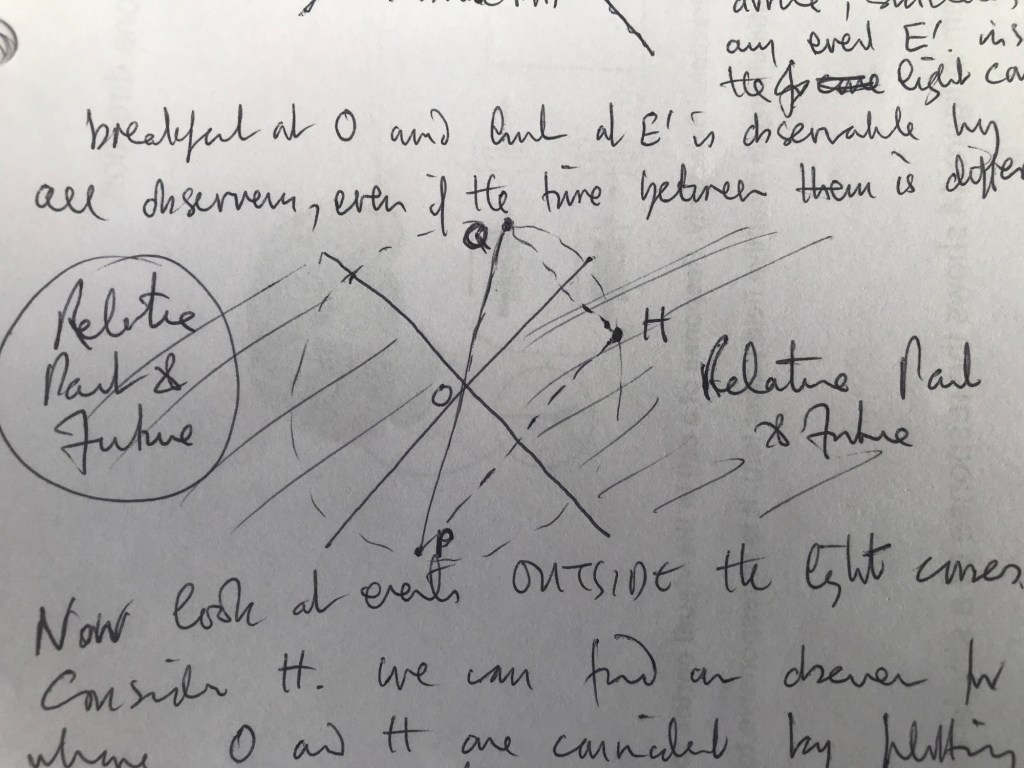 any event E'. ins
the light co
breakfast at O and lunch at E' is observable by
all observers, even if the time between them is differ
Q
H
Relative
Past &
Future
O
Relative Past
& Future
P
Now look at events OUTSIDE the light cones.
Consider H. we can find an observer for
whom O and H are coincident by plotting